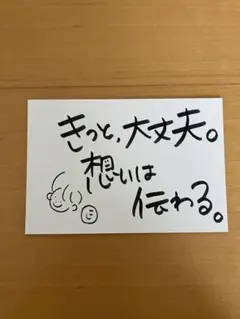 きっと、大丈夫。
想いは
伝わる。